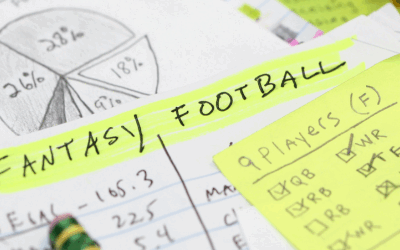 28%
26%
18%
9%
FANTASY FOOTBALL
9 PLAYERS (F)
QB
WR
RB
TE
RB
165.3
22.5
5.4